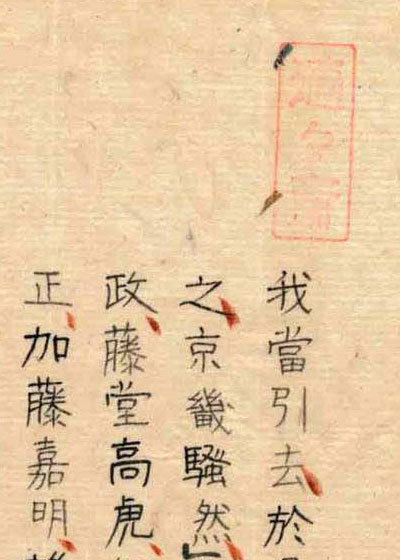 我當引去於
之京畿騷然
政藤堂高虎
正加藤嘉明